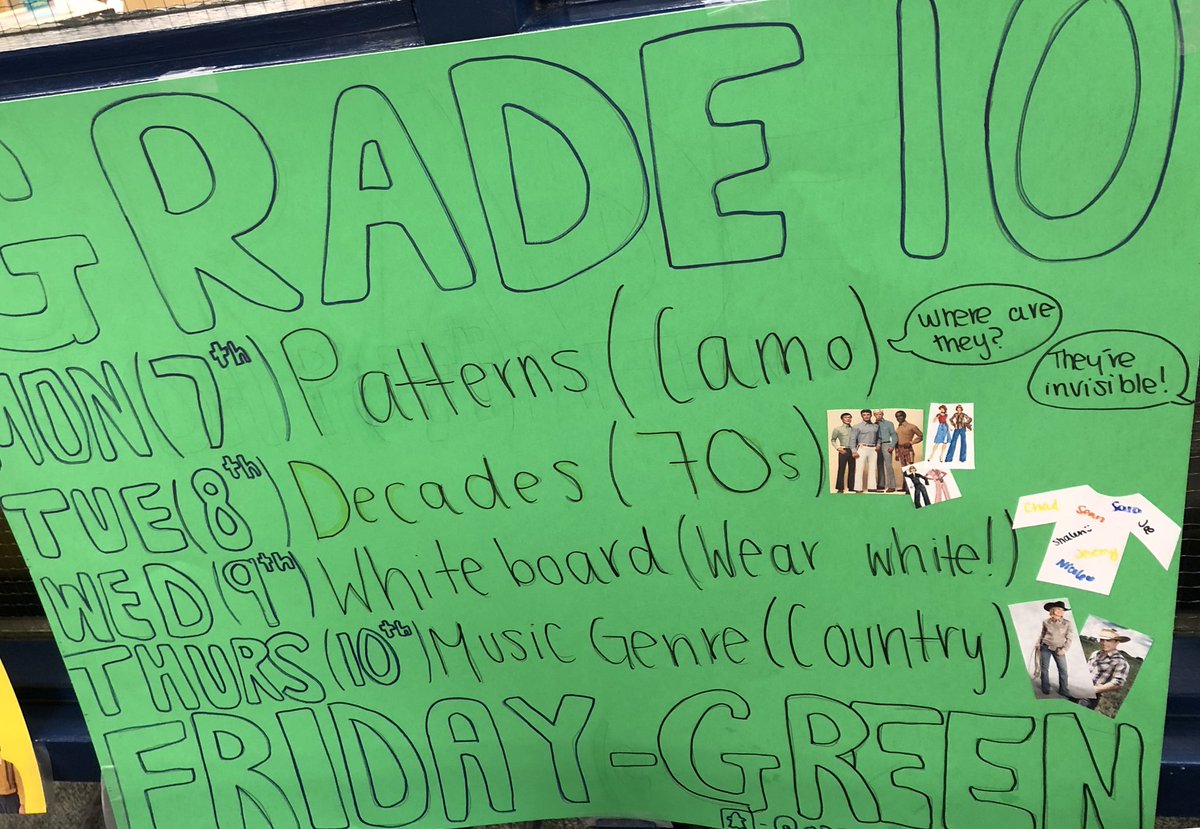 GRADE 10
MON (7th) Patterns (Camo)
Where are
they?
They're
invisible!
TUE (8th) Decades (70s)
WED (9th) White board (Wear white!)
Chad
Sean
Sara
Shalen
Jeremy
Nicole
THURS (10th) Music Genre (Country)
FRIDAY - GREEN